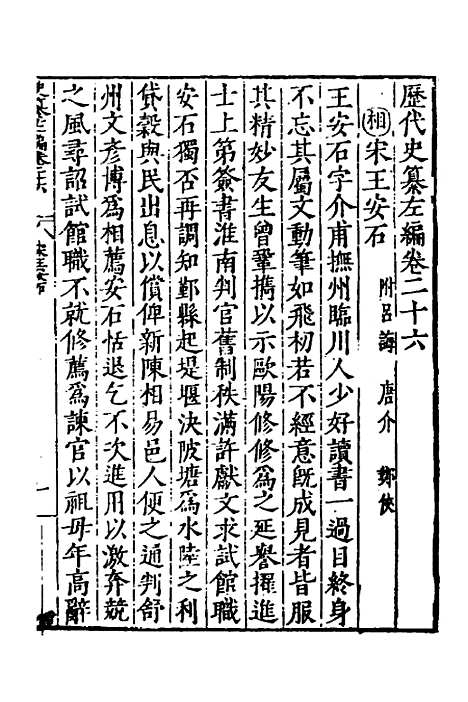 歷代史纂左編卷二十六
相 宋王安石 附呂誨 唐介 鄭俠
王安石字介甫撫州臨川人少好讀書一過目終身
不忘其屬文動筆如飛初若不經意旣成見者皆服
其精妙友生曾鞏攜以示歐陽修修爲之延譽擢進
士上第簽書淮南判官舊制秩滿許獻文求試館職
安石獨否再調知鄞縣起堤堰決陂塘爲水陸之利
貸穀與民出息以償俾新陳相易邑人便之通判舒
州文彥博爲相薦安石恬退乞不次進用以激奔競
之風尋詔試館職不就修薦爲諫官以祖母年高辭